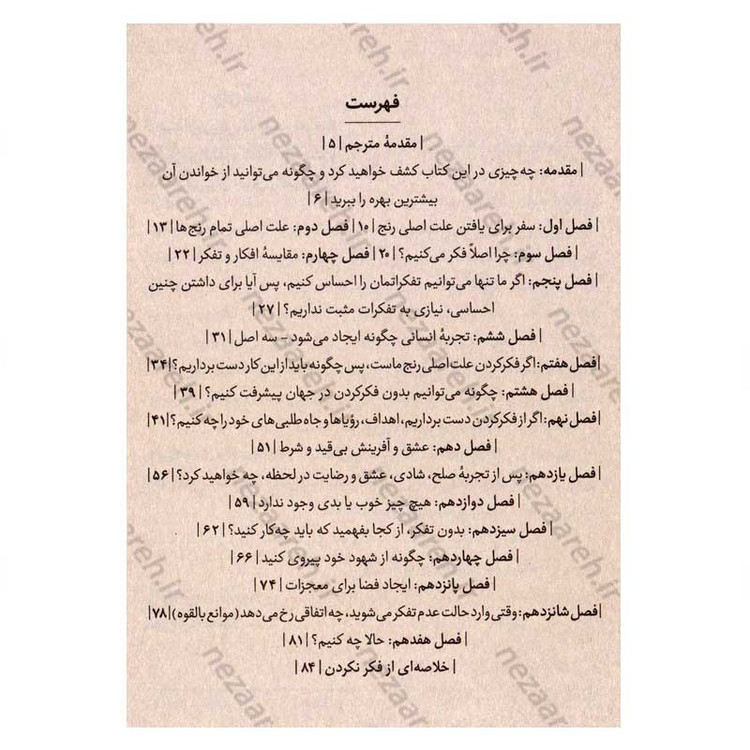 فهرست
| مقدمهٔ مترجم | ۵ |
| مقدمه: چه‌چیزی در این کتاب کشف خواهید کرد و چگونه می‌توانید از خواندن آن
بیشترین بهره را ببرید | ۶ |
| فصل اول: سفر برای یافتن علت اصلی رنج | ۱۰ | فصل دوم: علت اصلی تمام رنج‌ها | ۱۳ |
| فصل سوم: چرا اصلاً فکر می‌کنیم؟ | ۲۰ | فصل چهارم: مقایسهٔ افکار و تفکر | ۲۲ |
| فصل پنجم: اگر ما تنها می‌توانیم تفکراتمان را احساس کنیم، پس آیا برای داشتن چنین
احساسی، نیازی به تفکرات مثبت نداریم؟ | ۲۷ |
| فصل ششم: تجربهٔ انسانی چگونه ایجاد می‌شود - سه اصل | ۳۱ |
| فصل هفتم: اگر فکرکردن علت اصلی رنج ماست، پس چگونه باید از این کار دست برداریم؟ | ۳۴ |
| فصل هشتم: چگونه می‌توانیم بدون فکرکردن در جهان پیشرفت کنیم؟ | ۳۹ |
| فصل نهم: اگر از فکرکردن دست برداریم، اهداف، رؤیاها و جاه‌طلبی‌های خود را چه کنیم؟ | ۴۱ |
| فصل دهم: عشق و آفرینش بی‌قید و شرط | ۵۱ |
| فصل یازدهم: پس از تجربهٔ صلح، شادی، عشق و رضایت در لحظه، چه خواهید کرد؟ | ۵۶ |
| فصل دوازدهم: هیچ چیز خوب یا بدی وجود ندارد | ۵۹ |
| فصل سیزدهم: بدون تفکر، از کجا بفهمید که باید چه‌کار کنید؟ | ۶۲ |
| فصل چهاردهم: چگونه از شهود خود پیروی کنید | ۶۶ |
| فصل پانزدهم: ایجاد فضا برای معجزات | ۷۴ |
| فصل شانزدهم: وقتی وارد حالت عدم تفکر می‌شوید، چه اتفاقی رخ می‌دهد (موانع بالقوه) | ۷۸ |
| فصل هفدهم: حالا چه کنیم؟ | ۸۱ |
| خلاصه‌ای از فکر نکردن | ۸۴ |
nezaareh.ir